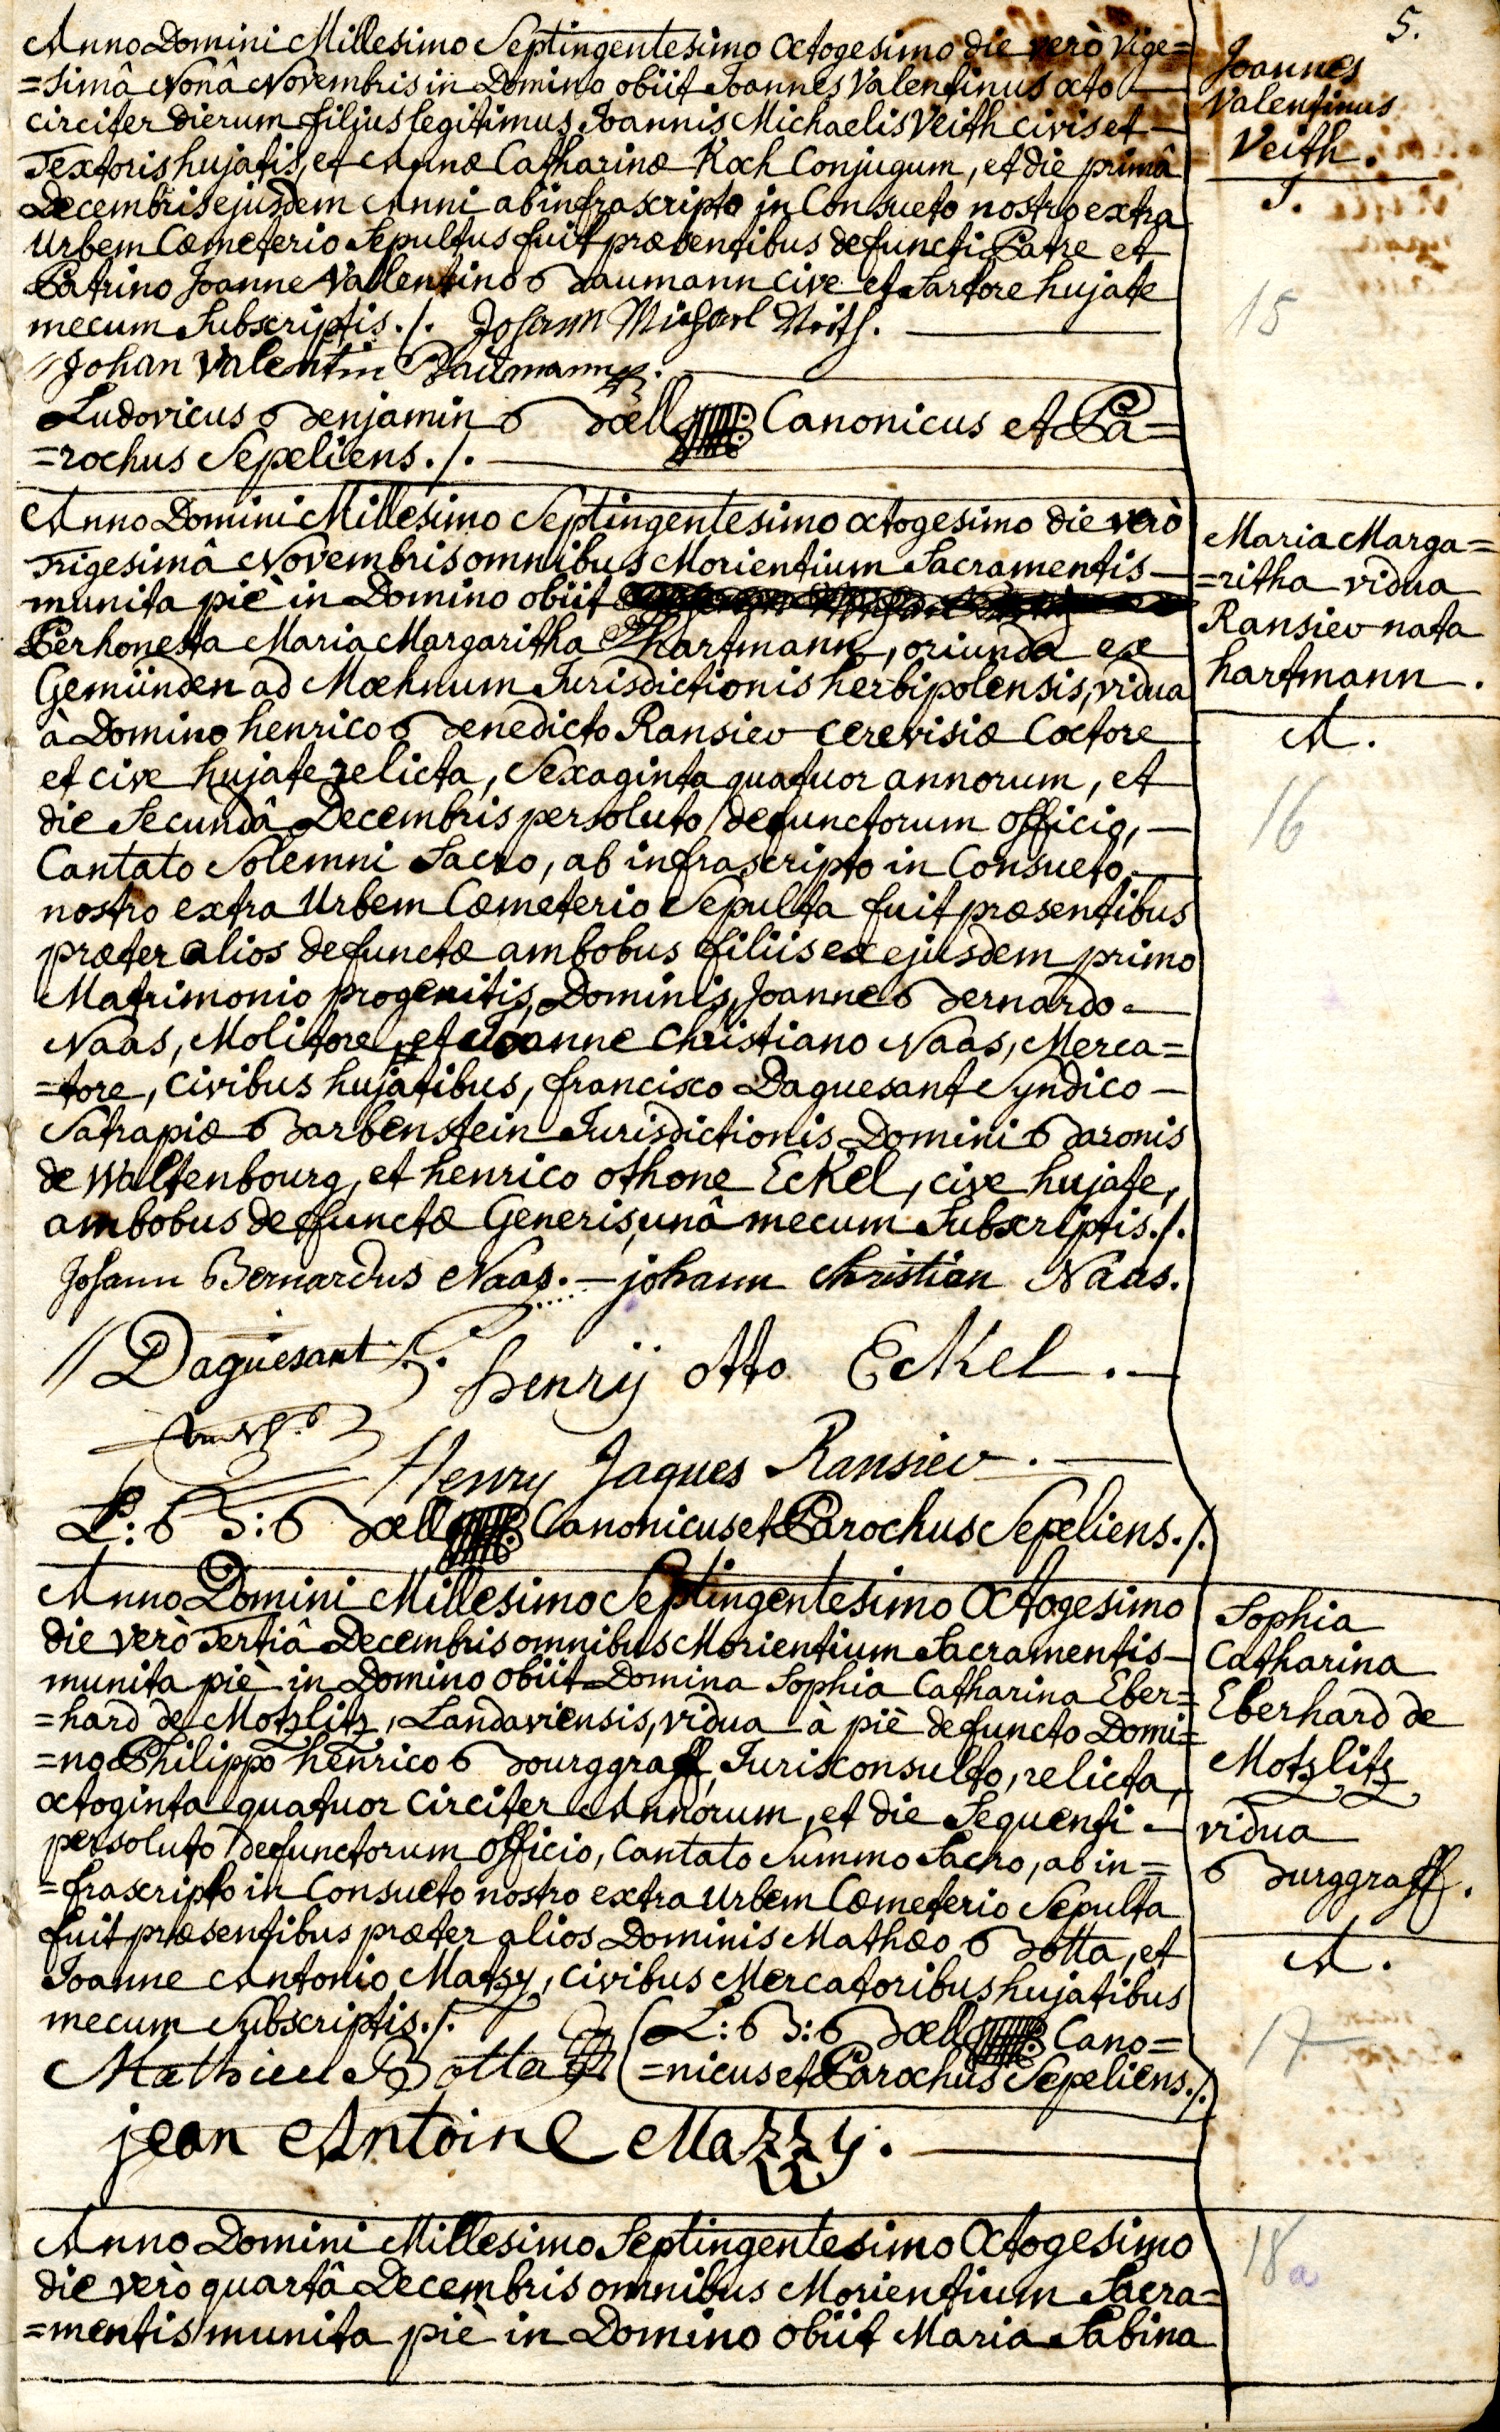 5.
Anno Domini Millesimo Septingentesimo Octogesimo die verò Vige=
=simâ Nonâ Novembris in Domino obiit Joannes Valentinus octo —
circiter dierum filius legitimus Joannis Michaelis Veith civis et —
Textoris hujatis, et Annæ Catharinæ Koch Conjugum, et die primâ
Decembris ejusdem Anni ab infrascripto in Consueto nostro extra
Urbem Cœmeterio Sepultus fuit præsentibus defuncti Patre et
Patrino Joanne Vallentino Baumann cive et Sartore hujate
mecum Subscriptis./. Johann Michael Veith. —
Johan Valentin Baumann.
Ludovicus Benjamin Boell Canonicus et Pa=
=rochus Sepeliens./. —
Joannes
Valentinus
Veith.
J.
15
Anno Domini Millesimo Septingentesimo octogesimo die verò
Trigesimâ Novembris omnibus Morientium Sacramentis —
munita piè in Domino obiit
Perhonesta Maria Margaritha Hartmann, oriunda ex
Gemünden ad Mœhnum Jurisdictionis herbipolensis, vidua
à Domino henrico Benedicto Ransiev cerevisiæ Coctore
et cive hujate relicta, Sexaginta quatuor annorum, et
die Secundâ Decembris persoluto defunctorum officio, —
Cantato Solemni Sacro, ab infrascripto in Consueto —
nostro extra Urbem Cœmeterio Sepulta fuit præsentibus
præter alios defunctæ ambobus filiis ex ejusdem primo
Matrimonio progenitis, Dominis, Joanne Bernardo —
Naas, Molitore, et Joanne Christiano Naas, Merca=
=tore, civibus hujatibus, francisco Daguesant Syndico —
Satrapiæ Barbenstein Jurisdictionis Domini Baronis
de Waltenbourg, et henrico othone Eckel, cive hujate,
ambobus defunctæ Generis, unâ mecum Subscriptis./.
Johann Bernardus Naas. — johann christian Naas.
Daguesant henrij otto Eckel. —
Henry Jaques Ransiev. —
L: B: Boell Canonicus et Parochus Sepeliens./.
Maria Marga=
=ritha vidua
Ransiev nata
hartmann.
A.
16
Anno Domini Millesimo Septingentesimo Octogesimo
die verò Tertiâ Decembris omnibus Morientium Sacramentis —
munita piè in Domino obiit Domina Sophia Catharina Eber=
=hard de Motzlitz, Landaviensis, vidua à piè defuncto Domi=
=no Philippo henrico Bourggraff, Jurisconsulto, relicta,
octoginta quatuor circiter Annorum, et die Sequenti —
persoluto defunctorum Officio, Cantato Summo Sacro, ab in=
=frascripto in Consueto nostro extra Urbem Cœmeterio Sepulta
fuit præsentibus præter alios Dominis Mathæo Botta, et
Joanne Antonio Matzy, civibus Mercatoribus hujatibus
mecum Subscriptis./.
Mathieu Botta
L: B: Boell Cano=
=nicus et Parochus Sepeliens./.
jean Antoine Mazzy. —
Sophia
Catharina
Eberhard de
Motzlitz
vidua
Burggraff.
A.
17
Anno Domini Millesimo Septingentesimo Octogesimo
die verò quartâ Decembris omnibus Morientium Sacra=
=mentis munita piè in Domino obiit Maria Sabina
18a